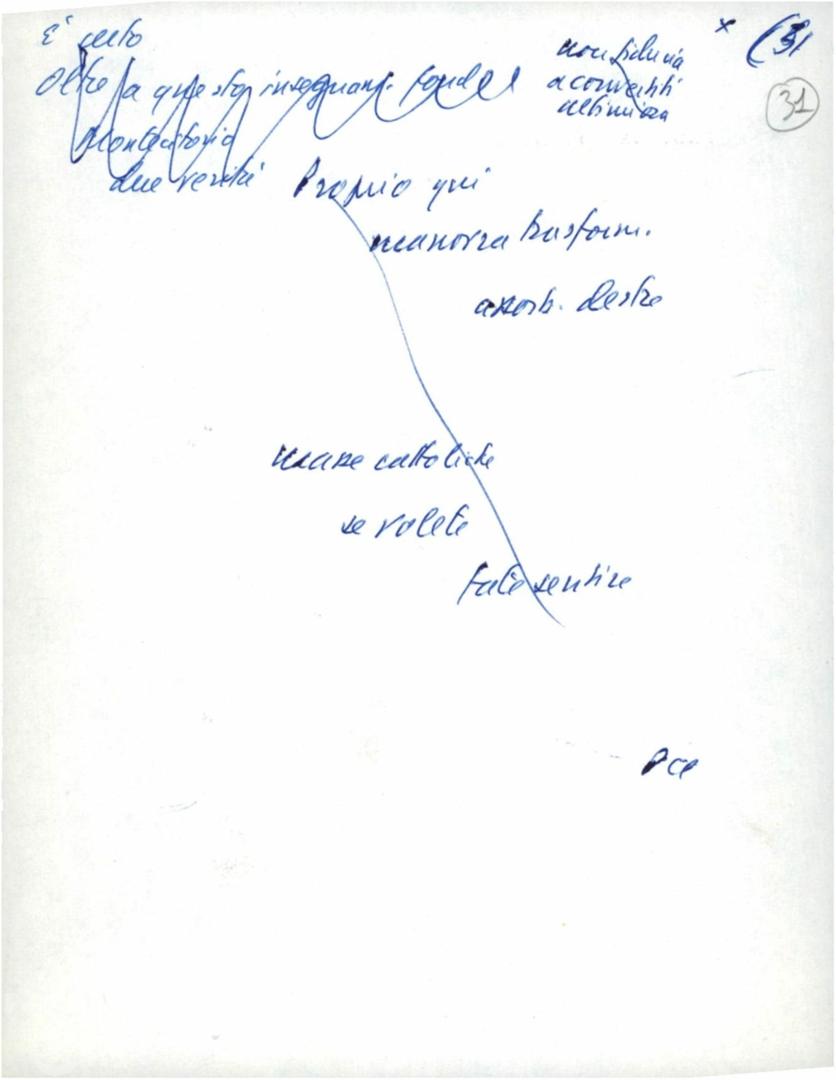 x (31
31
È certo
Oltre a questo insegnam. fond.
non fiducia
a convertiti
ultim'ora
Montecitorio
due verità
Proprio qui
manovra trasform.
assorb. destre
masse cattoliche
se volete
fate sentire
Pci